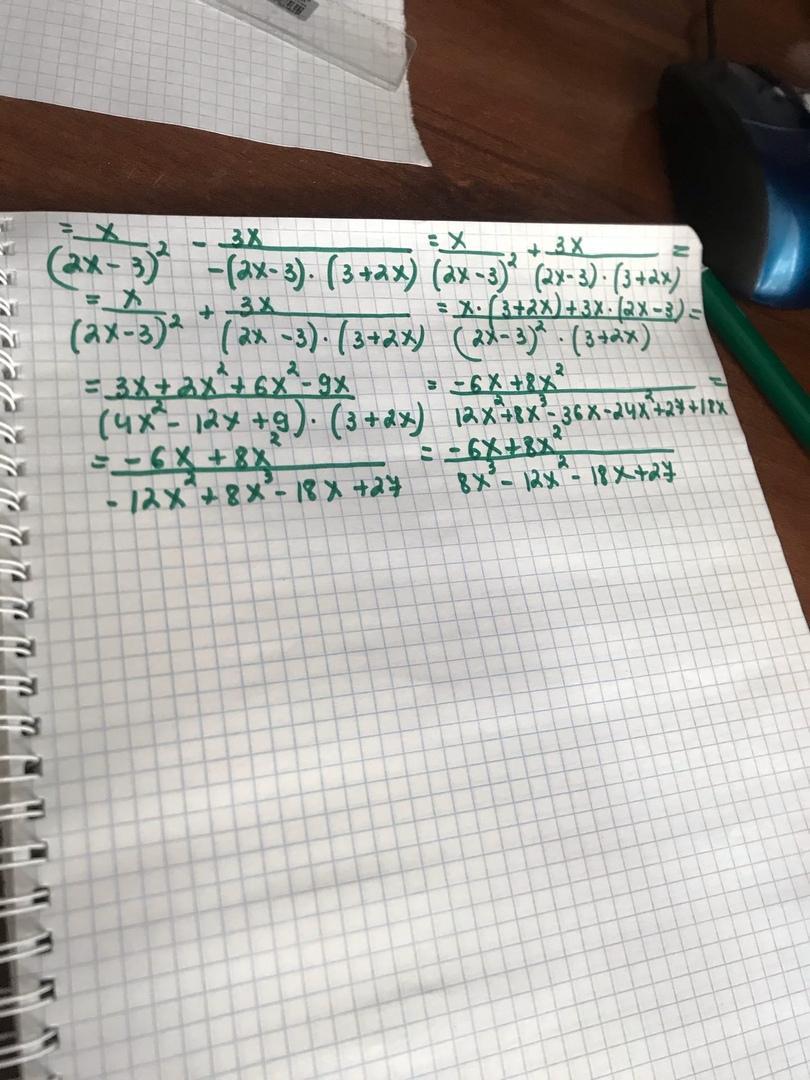 = x/(2x-3)² - 3x/(-(2x-3)·(3+2x)) = x/(2x-3)² + 3x/((2x-3)·(3+2x)) =
= x/(2x-3)² + 3x/((2x-3)·(3+2x)) = (x·(3+2x)+3x·(2x-3))/((2x-3)²·(3+2x)) =
= (3x+2x²+6x²-9x)/((4x²-12x+9)·(3+2x)) = (-6x+8x²)/(12x²+8x³-36x-24x²+27+18x) =
= (-6x+8x²)/(-12x²+8x³-18x+27) = (-6x+8x²)/(8x³-12x²-18x+27)